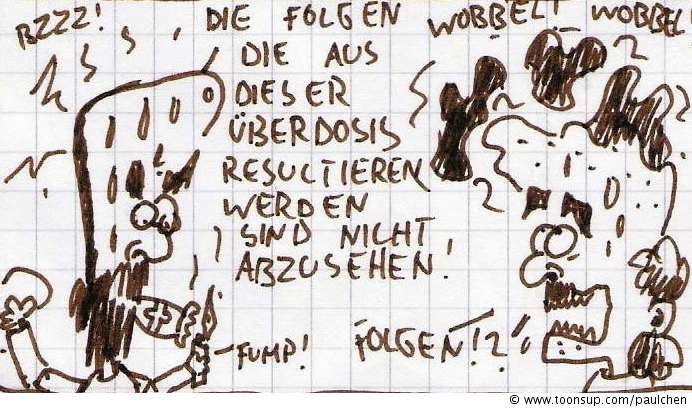 BZZZ!
DIE FOLGEN
DIE AUS
DIESER
ÜBERDOSIS
RESULTIEREN
WERDEN
SIND NICHT
ABZUSEHEN!
WOBBEL! WOBBEL!
FUMP!
FOLGEN!?
© www.toonsup.com/paulchen